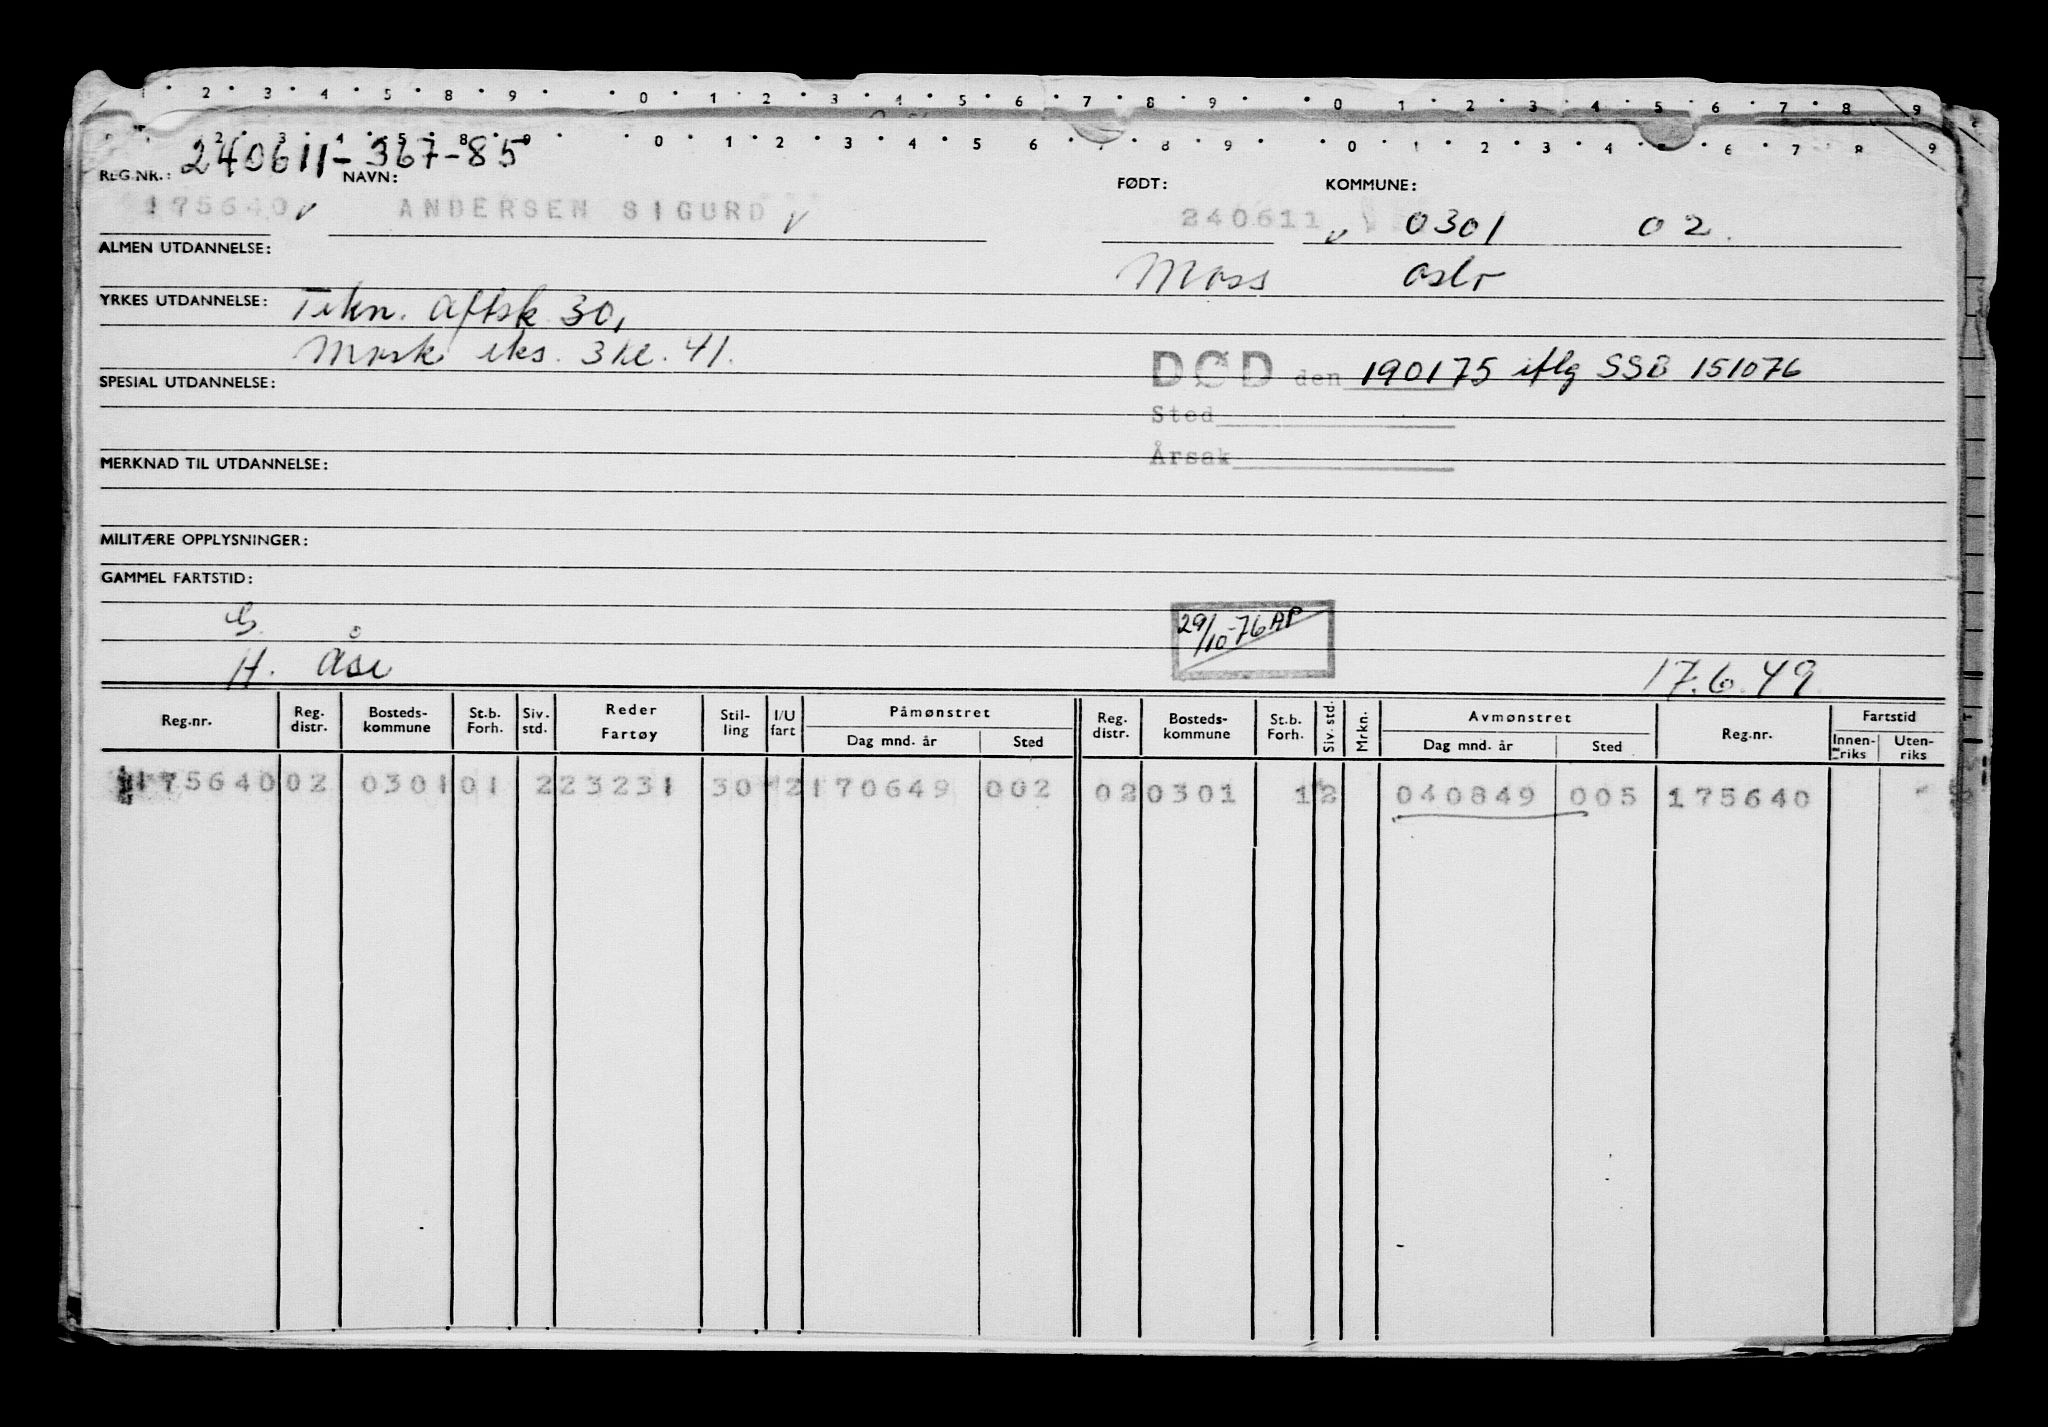 1 2 3 4 5 8 9 0 1 2 3 4 5 6 7 8 9 0 1 2 3 4 5 6 7 8 9
2 3 4 5 8 9 0 1 2 3 4 5 6 7 8 9 0 1 2 3 4 5 6 7 8 9
240611-367-85
REG.NR.: NAVN: FØDT: KOMMUNE:
175640 ANDERSEN SIGURD 240611 0301 02.
ALMEN UTDANNELSE: Moss Oslo
YRKES UTDANNELSE: Tekn. Aftsk 30,
Mask eks. 3 kl. 41.
DØD den 190175 iflg SSB 151076
SPESIAL UTDANNELSE:
Sted
Årsak
MERKNAD TIL UTDANNELSE:
MILITÆRE OPPLYSNINGER:
GAMMEL FARTSTID:
G.
29/10-76 AP
H. Åse 17.6.49
Reg.nr. Reg. distr. Bosteds-kommune St.b. Forh. Siv. std. Reder Fartøy Stil-ling I/U fart Påmønstret Dag mnd. år Sted Reg. distr. Bosteds-kommune St.b. Forh. Siv. std. Mrkn. Avmønstret Dag mnd. år Sted Reg.nr. Fartstid Innen-riks Uten-riks
175640 02 0301 01 2 23231 30 2 170649 002 02 0301 1 2 040849 005 175640